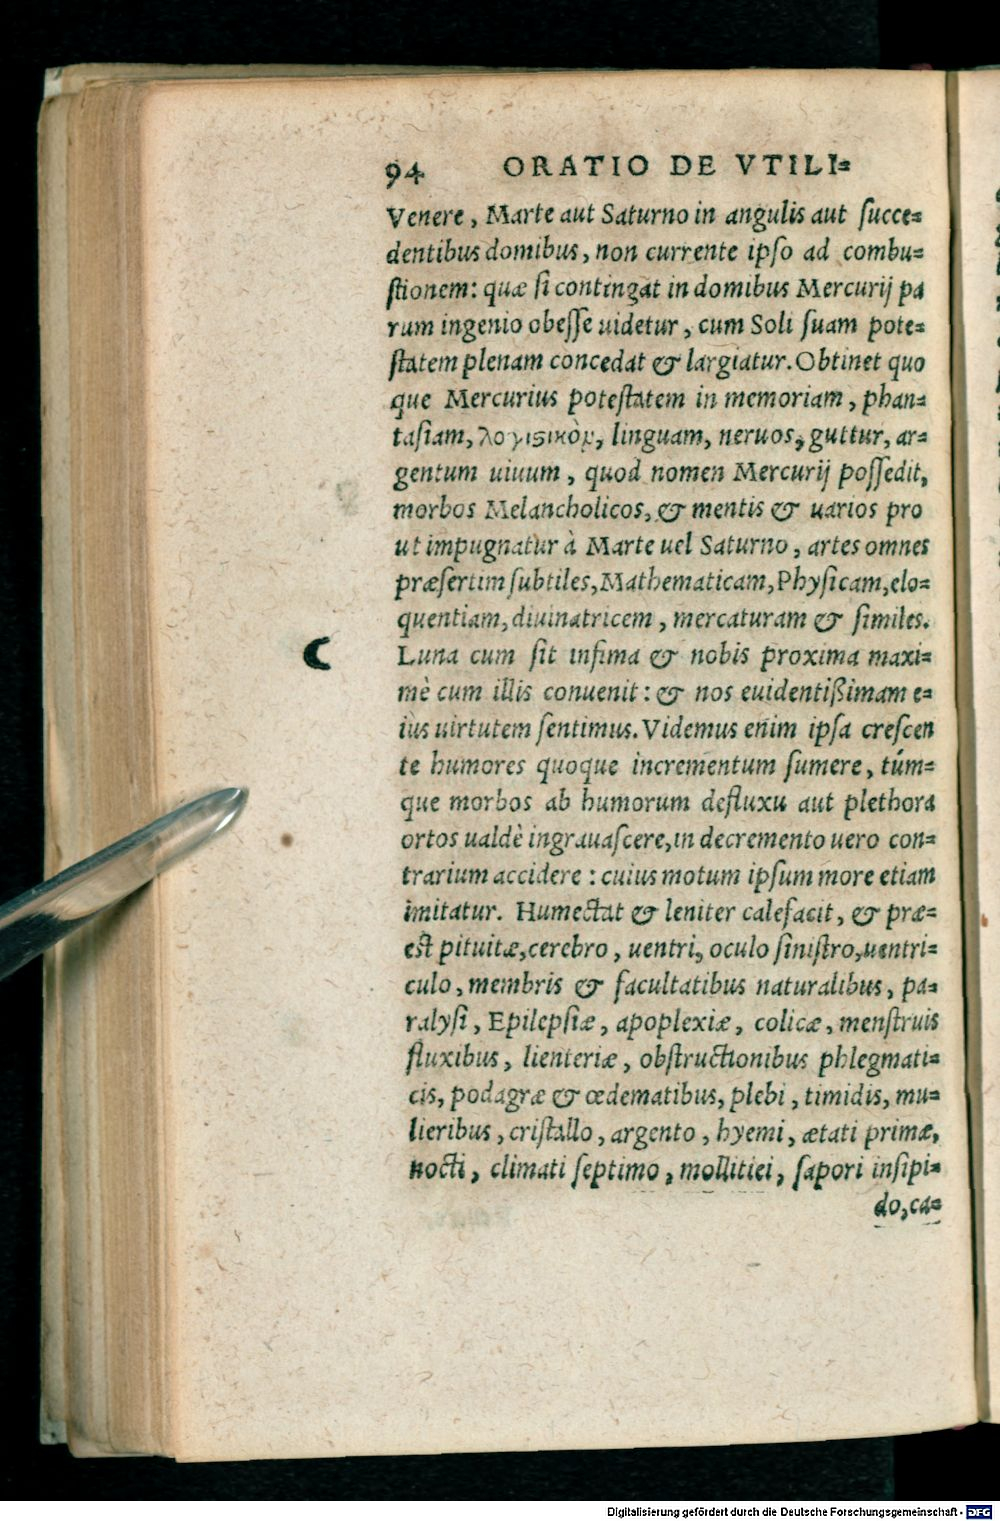 94 ORATIO DE VTILI=
Venere, Marte aut Saturno in angulis aut ſucce=
dentibus domibus, non currente ipſo ad combu=
ſtionem: quæ ſi contingat in domibus Mercurij pa
rum ingenio obeſſe uidetur, cum Soli ſuam pote=
ſtatem plenam concedat & largiatur. Obtinet quo
que Mercurius poteſtatem in memoriam, phan=
taſiam, λογιϛικὸμ, linguam, neruos, guttur, ar=
gentum uiuum, quod nomen Mercurij poſſedit,
morbos Melancholicos, & mentis & uarios pro
ut impugnatur à Marte uel Saturno, artes omnes
præſertim ſubtiles, Mathematicam, Phyſicam, elo=
quentiam, diuinatricem, mercaturam & ſimiles.
☾ Luna cum ſit infima & nobis proxima maxi=
mè cum illis conuenit: & nos euidentißimam e=
ius uirtutem ſentimus. Videmus enim ipſa creſcen
te humores quoque incrementum ſumere, túm=
que morbos ab humorum defluxu aut plethora
ortos ualdè ingrauaſcere, in decremento uero con=
trarium accidere: cuius motum ipſum more etiam
imitatur. Humectat & leniter calefacit, & præ=
eſt pituitæ, cerebro, uentri, oculo ſiniſtro, uentri=
culo, membris & facultatibus naturalibus, pa=
ralyſi, Epilepſiæ, apoplexiæ, colicæ, menſtruis
fluxibus, lienteriæ, obſtructionibus phlegmati=
cis, podagræ & œdematibus, plebi, timidis, mu=
lieribus, criſtallo, argento, hyemi, ætati primæ,
nocti, climati ſeptimo, mollitiei, ſapori inſipi=
do, ca=
Digitalisierung gefördert durch die Deutsche Forschungsgemeinschaft - DFG